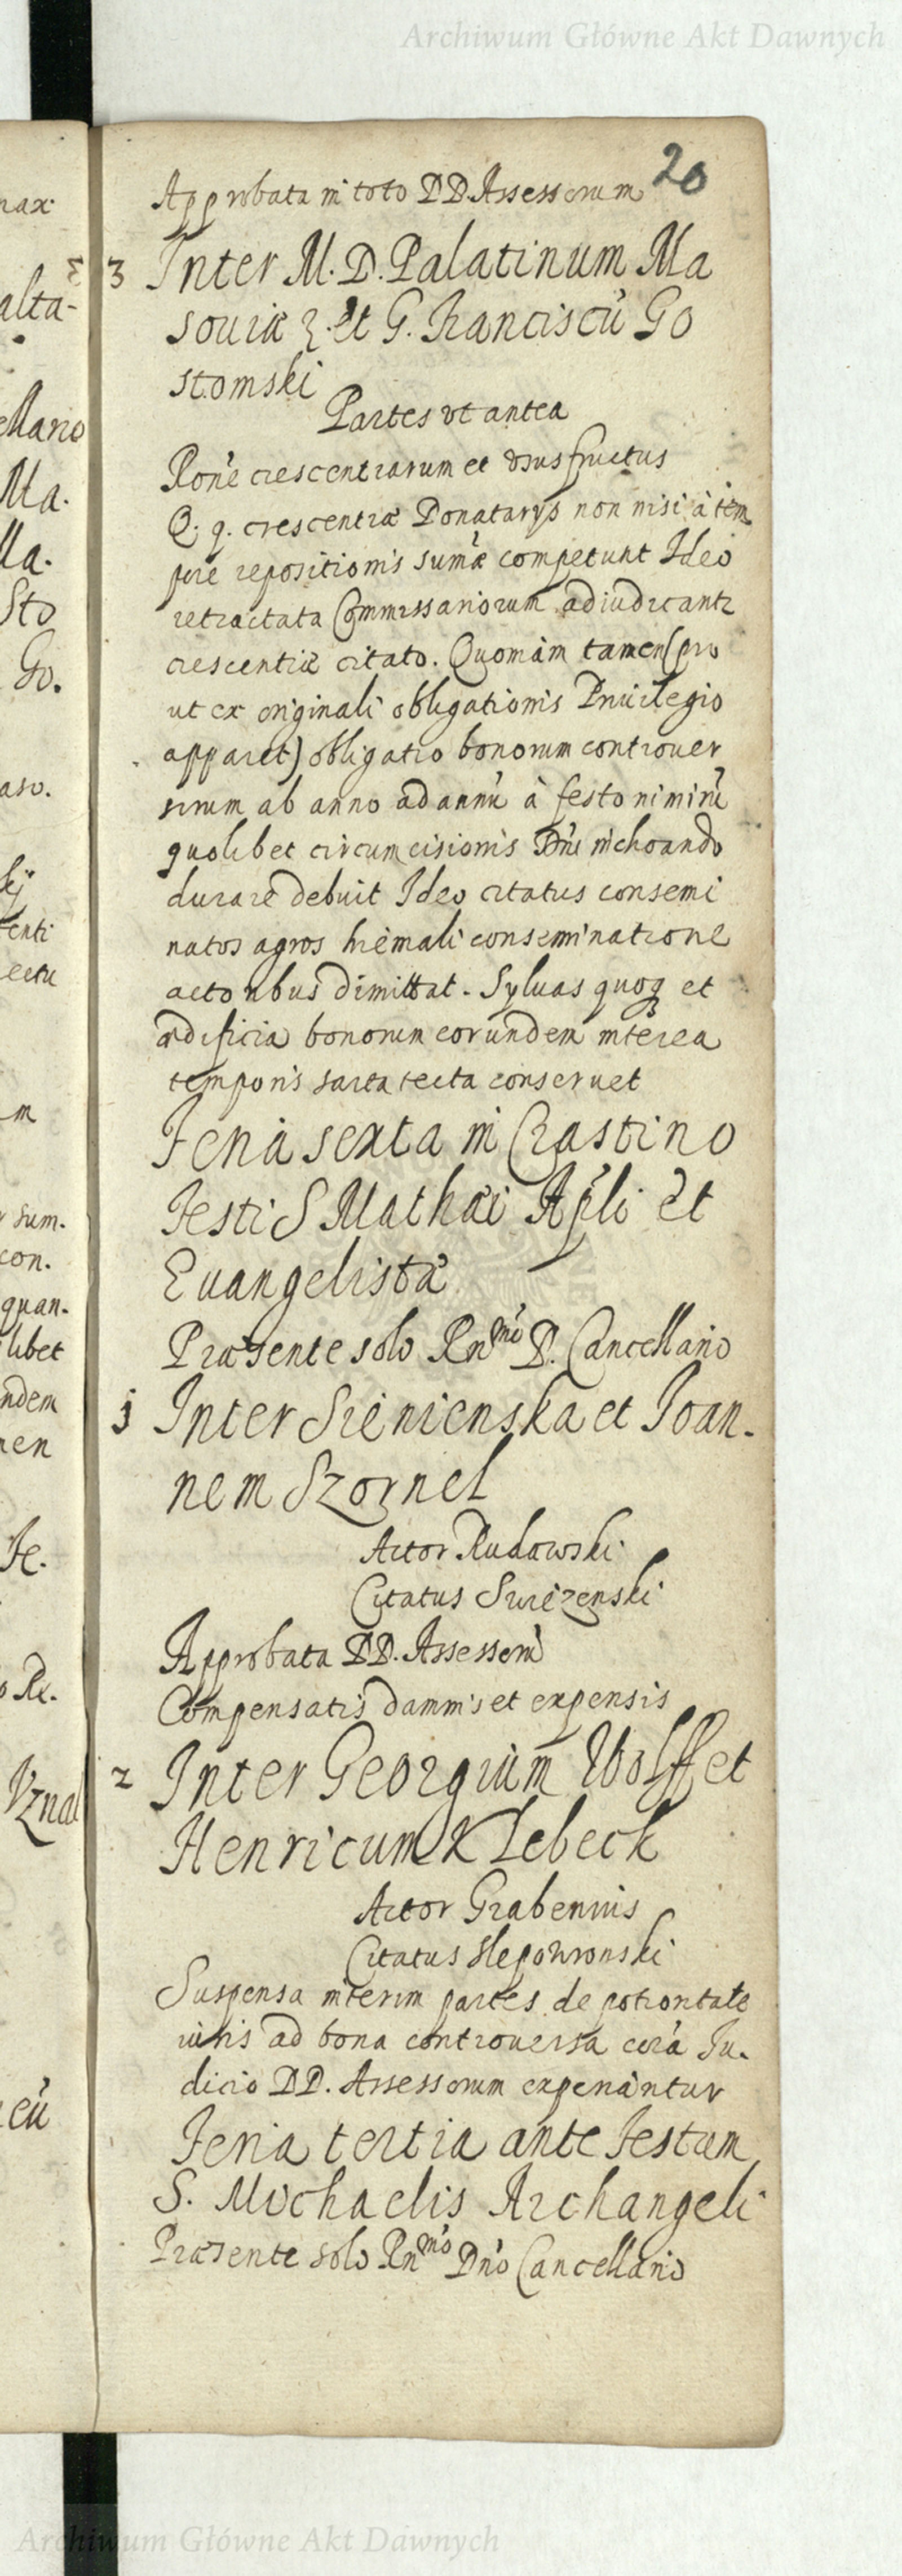 Archiwum Główne Akt Dawnych
20
Approbata in toto DD. Assessorum
3 Inter M. D. Palatinum Ma
souiæ et G. Franciscũ Go
stomski
Partes vt antea
Rone crescentiarum et vsusfructus
Q. q. crescentiæ Donatarys non nisi à tem
pore repositionis sumæ competunt Ideo
retractata Commissariorum adiudicant
crescentiæ citato. Quoniam tamen (pro
ut ex originali obligationis Priuilegio
apparet) obligatio bonorum controuer
sirum ab anno ad annũ à festo nimirũ
quolibet circumcisionis Dni inchoando
durare debuit Ideo citatus consemi
natos agros hiemali conseminatione
actoribus dimittat. Syluas quoq et
ædificia bonorum eorundem interea
temporis sarta tecta conseruet
Feria sexta in Crastino
Festi S Mathæi Apli et
Euangelistæ
Præsente solo Rnmo D. Cancellario
1 Inter Sienienska et Joan-
nem Szornel
Actor Rudowski
Citatus Swiezenski
Approbata DD. Assessorũ
Compensatis damnis et expensis
2 Inter Georgium Wolff et
Henricum Klebeck
Actor Grabenius
Citatus Slepowronski
Suspensa interim partes de potioritate
iuris ad bona controuersa corã Ju-
dicio DD. Assessorum experiantur
Feria tertia ante Festum
S. Michaelis Archangeli
Præsente solo Rnmo Dno Cancellario
nax
alta-
ellario
Ma.
lla.
Sto
Go.
aso.
enti
ectu
m
sum.
con.
quan-
libet
ndem
nen
Fe.
Re.
Vznal
eũ
Archiwum Główne Akt Dawnych